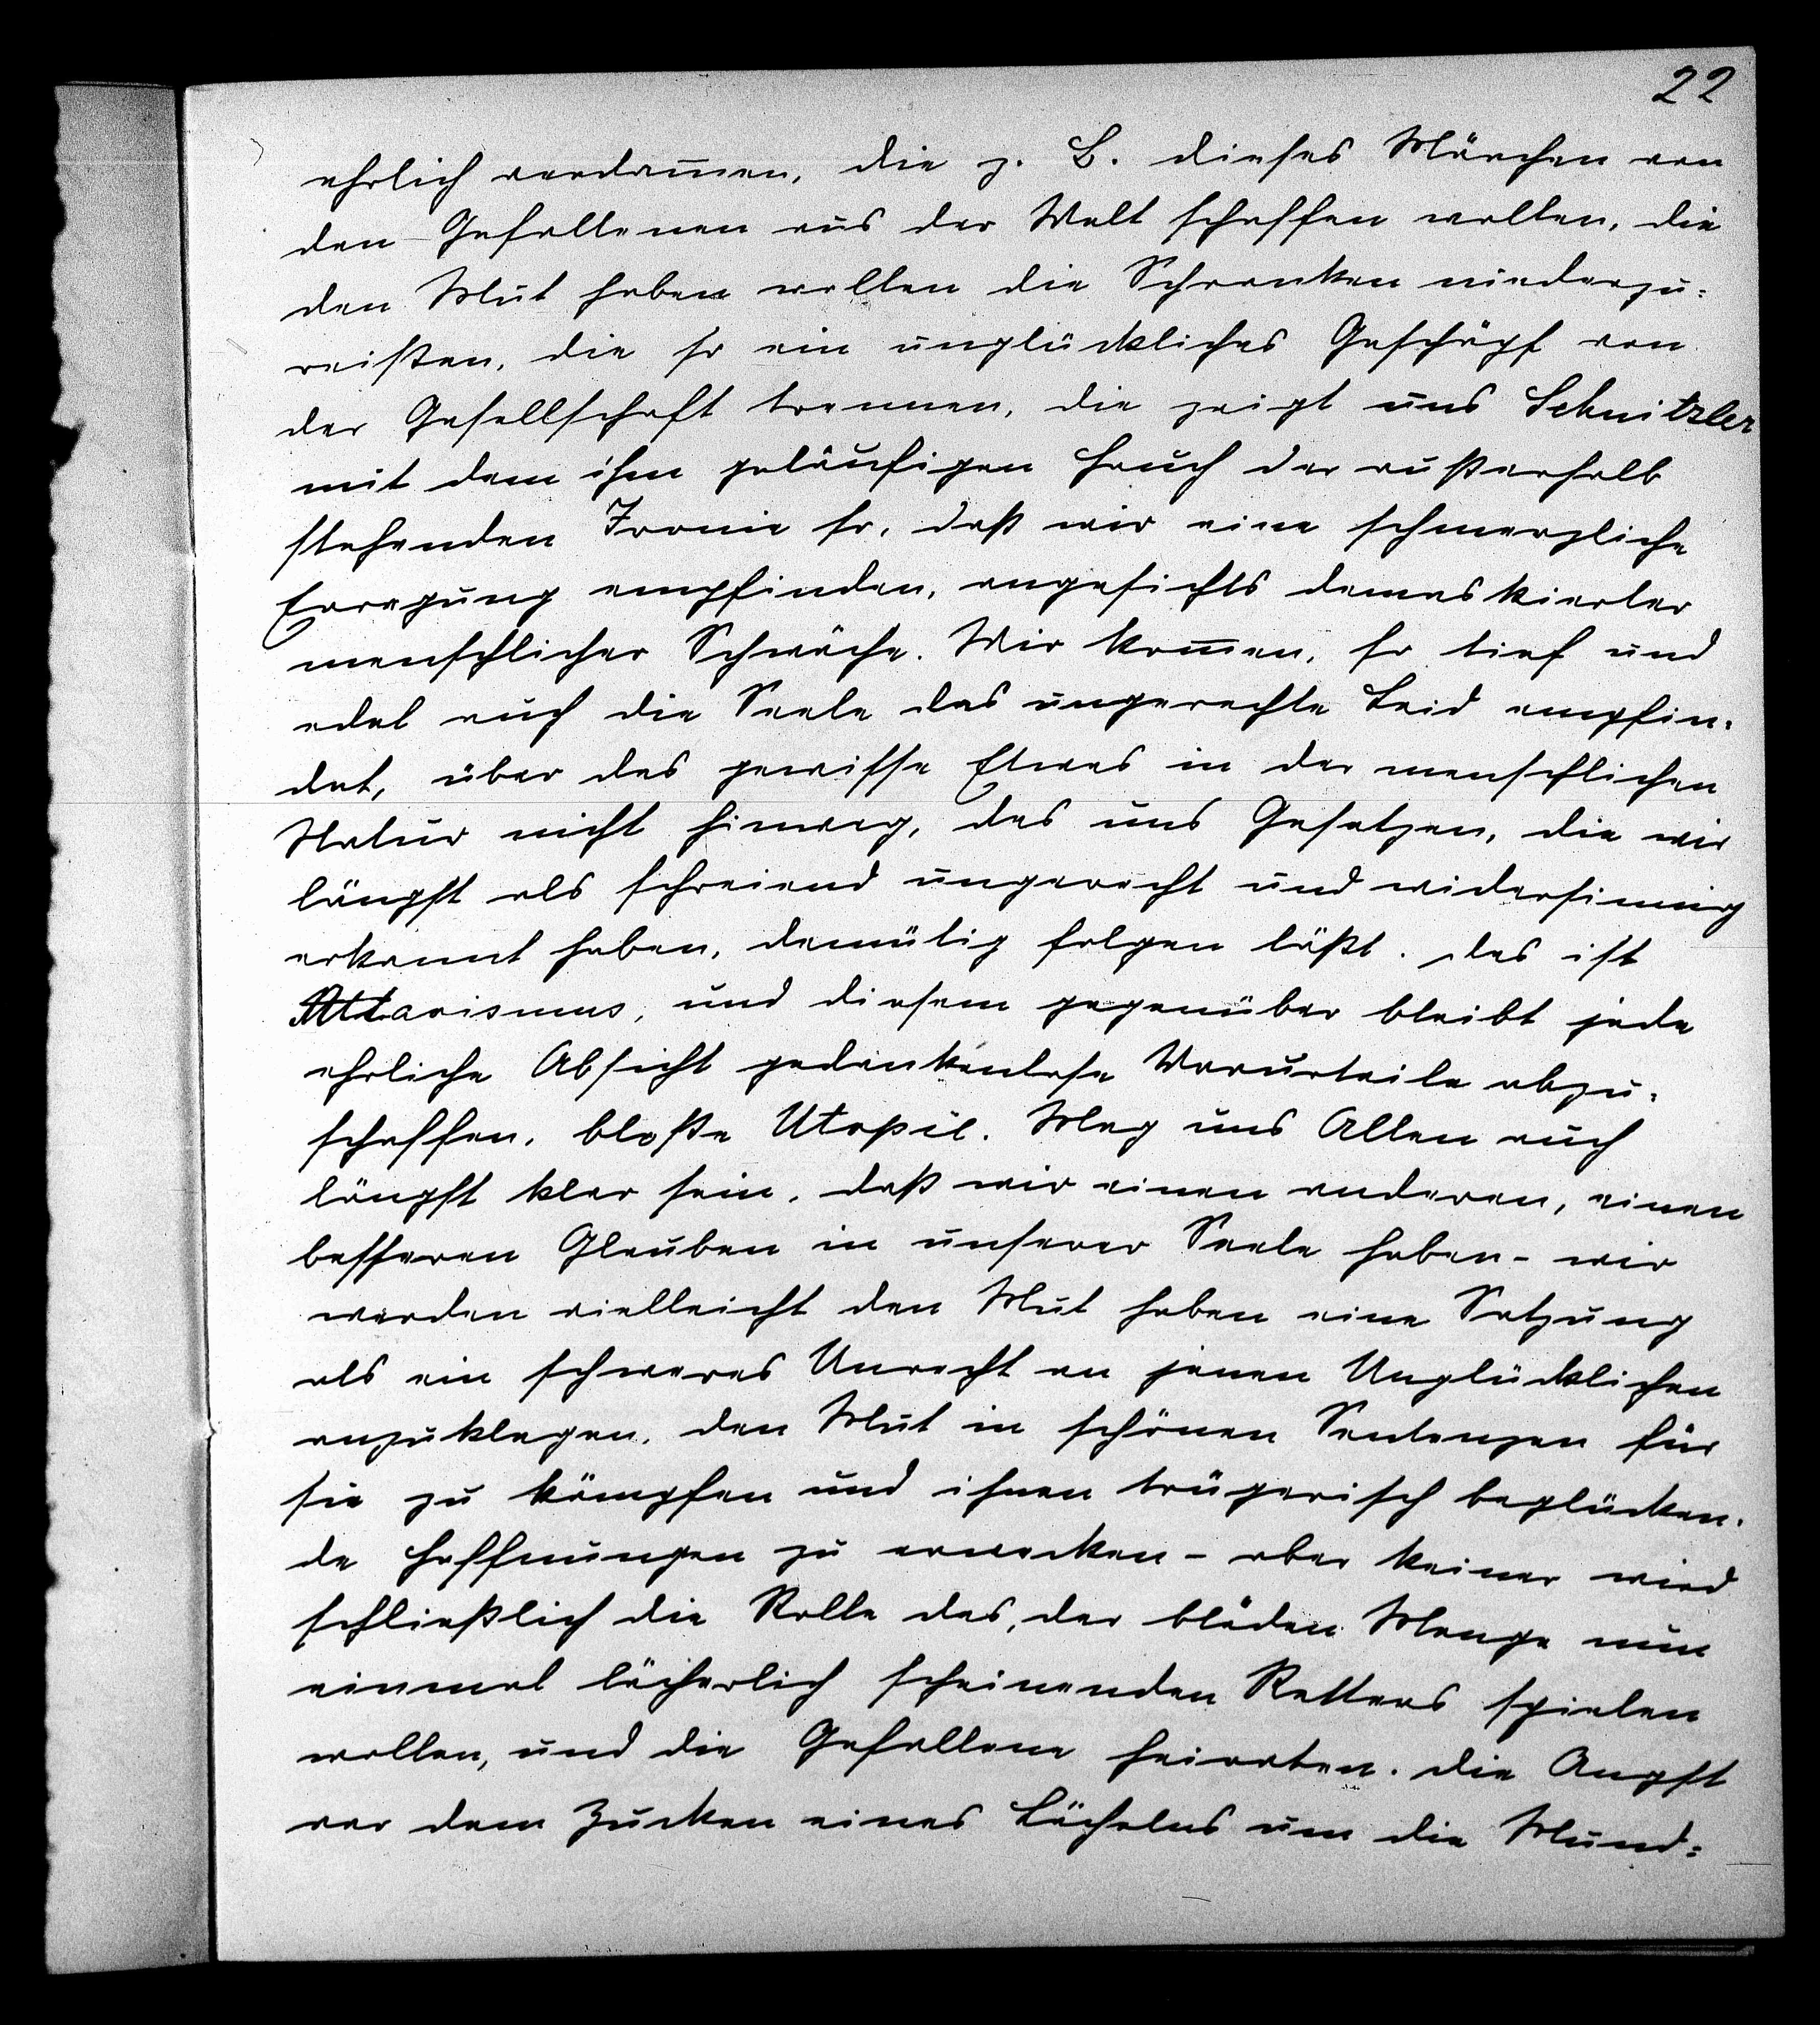 22
ehrlich verdam̅en, die z. B. dieses Märchen von
den Gefallenen aus der Welt schaffen wollen, die
den Mut haben wollen die Schranken niederzu=
reißen, die so ein unglückliches Geschöpf von
der Gesellschaft trennen, die zeigt uns Schnitzler
mit dem ihm geläufigen Hauch der außerhalb
stehenden Ironie so, daß wir eine schmerzliche
Erregung empfinden, angesichts demaskierter
menschlicher Schwäche. Wir kom̅en, so tief und
edel auch die Seele das ungerechte Leid empfin=
det, über das gewisse Etwas in der menschlichen
Natur nicht hinweg, das uns Gesetzen, die wir
längst als schreiend ungerecht und widersinnig
erkannt haben, demütig folgen läßt. Das ist
Attavismus, und diesem gegenüber bleibt jede
ehrliche Absicht gedankenlose Vorurteile abzu=
schaffen, bloße Utopie. Mag uns Allen auch
längst klar sein, daß wir einen anderen, einen
besseren Glauben in unserer Seele haben - wir
werden vielleicht den Mut haben eine Satzung
als ein schweres Unrecht an jenen Unglücklichen
anzuklagen, den Mut in schönen Sentenzen für
sie zu kämpfen und ihnen trügerisch beglücken=
de Hoffnungen zu erwecken - aber keiner wird
schließlich die Rolle des, der blöden Menge nun
einmal lächerlich scheinenden Retters spielen
wollen, und die Gefallene heiraten. Die Angst
vor dem Zucken eines Lächelns um die Mund=